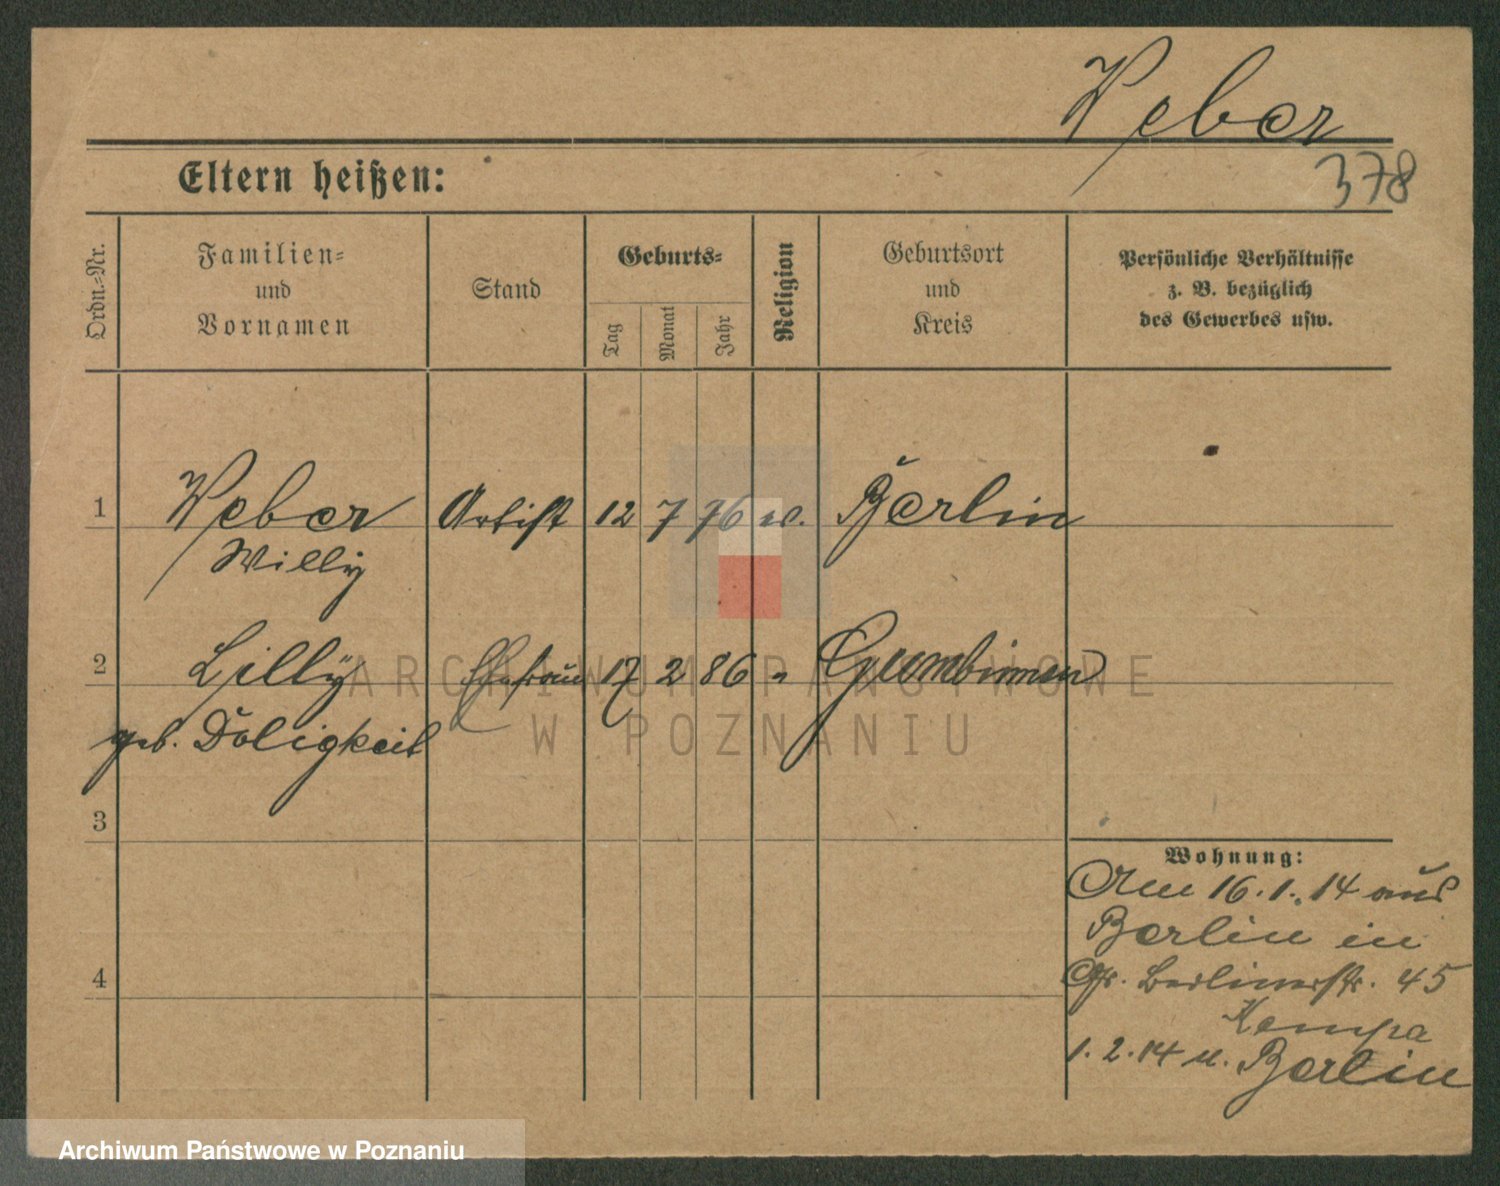 Weber
378
Eltern heißen:
Ordn.-Nr.
Familien-
und
Vornamen
Stand
Geburts-
Tag
Monat
Jahr
Religion
Geburtsort
und
Kreis
Persönliche Verhältnisse
z. B. bezüglich
des Gewerbes usw.
1 Weber Artist 12 7 76 ev. Berlin
Willy
2 Lilly Ehefrau 17 2 86 " Gumbinnen
geb. Doligkeit
3
Wohnung:
Am 16.1.14 aus
Berlin in
Gr. Berlinerstr. 45
4
Kempa
1.2.14 n. Berlin
ARCHIWUM PAŃSTWOWE
W POZNANIU
Archiwum Państwowe w Poznaniu